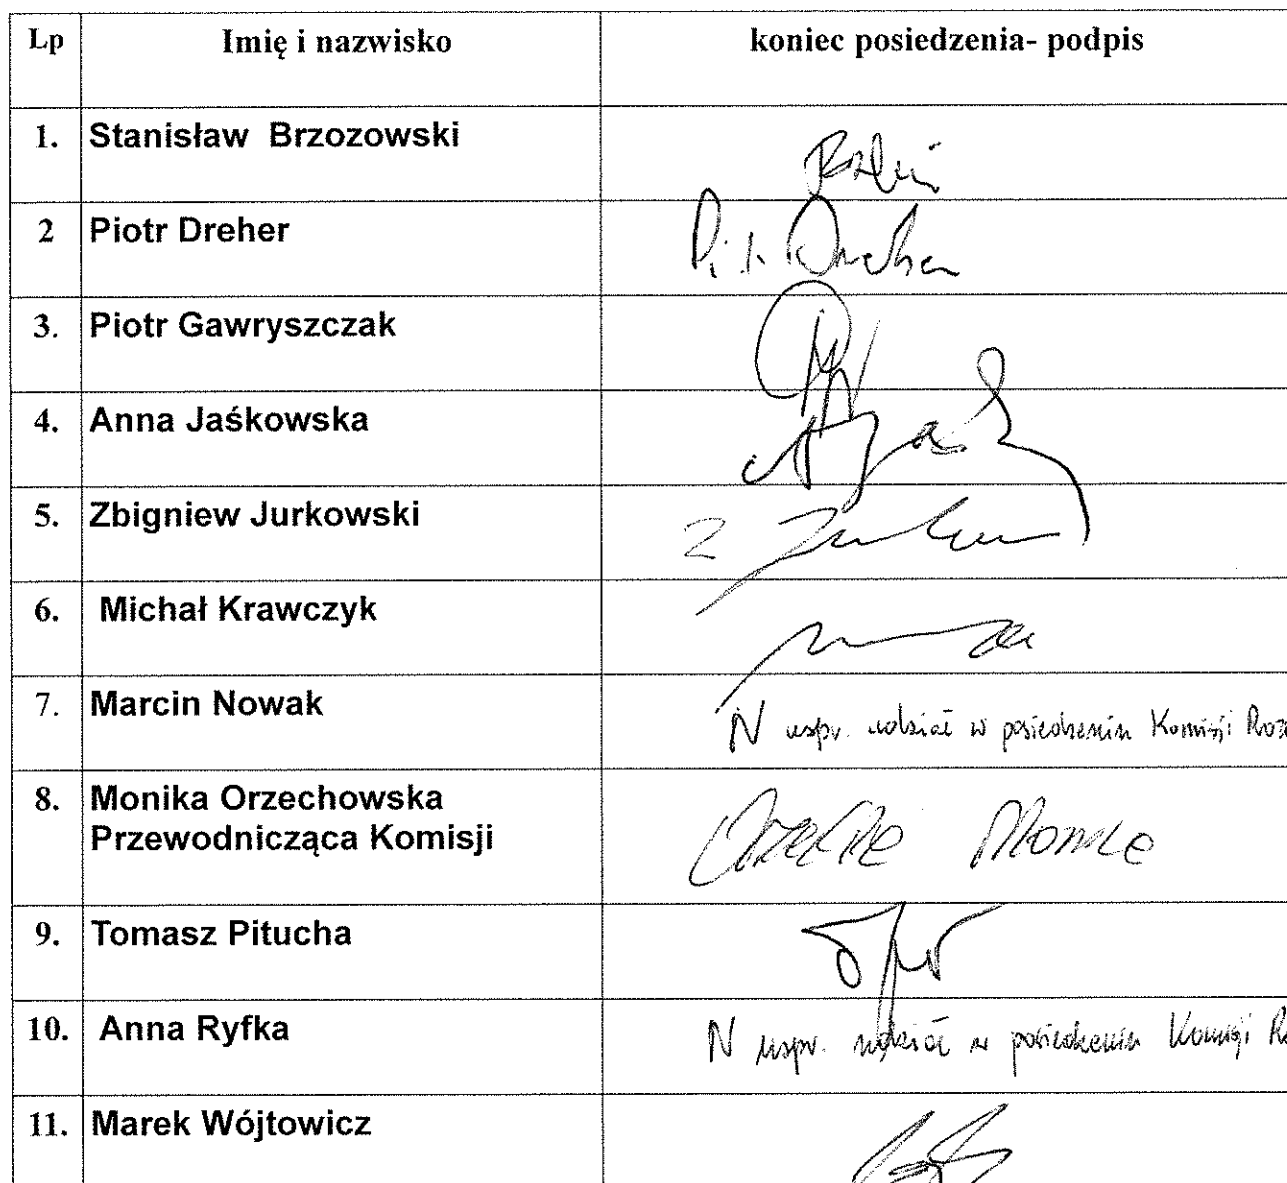 Lp Imię i nazwisko koniec posiedzenia- podpis
1. Stanisław Brzozowski
2 Piotr Dreher
3. Piotr Gawryszczak
4. Anna Jaśkowska
5. Zbigniew Jurkowski
6. Michał Krawczyk
7. Marcin Nowak N uspr. udział w posiedzeniu Komisji
8. Monika Orzechowska
Przewodnicząca Komisji
9. Tomasz Pitucha
10. Anna Ryfka N uspr. udział w posiedzeniu Komisji
11. Marek Wójtowicz